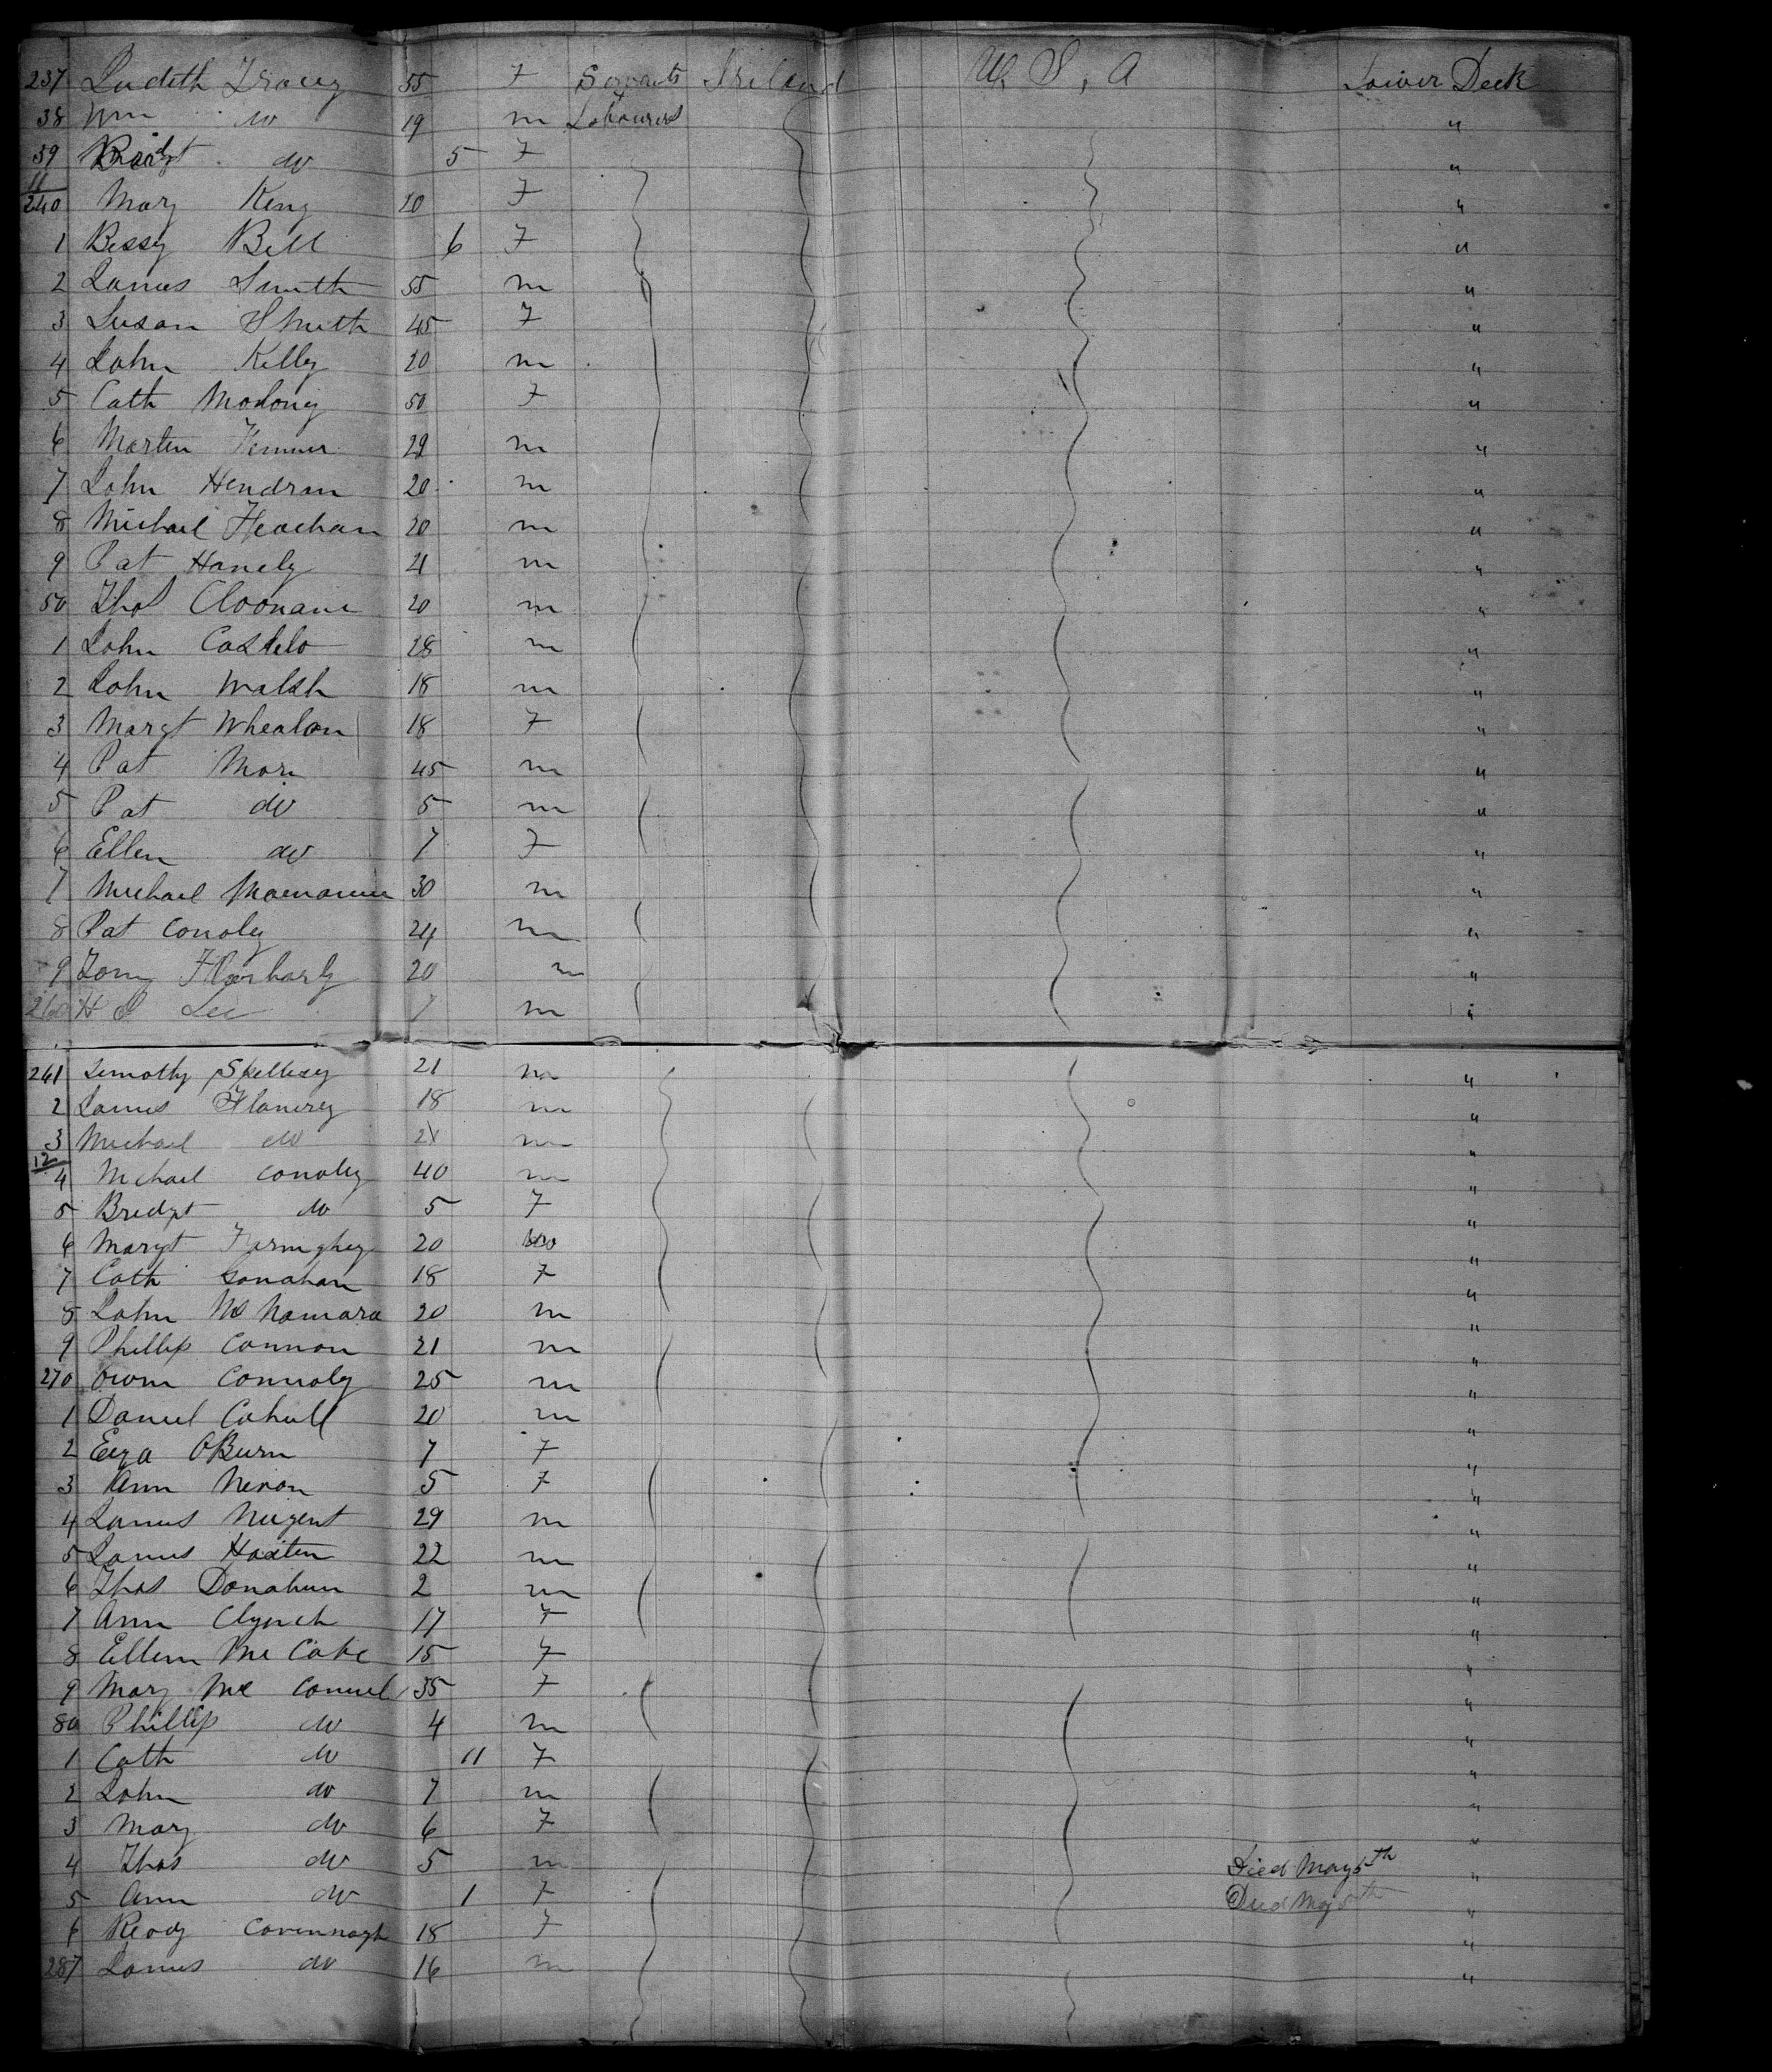 237 Judith Tracey 55 F Servants Ireland U, S, A Lower Deck
38 Wm do 19 m Labourers "
39 Bridgt do 5 F "
11
240 Mary King 20 F "
1 Bessy Bell 6 F "
2 James Smith 55 m "
3 Susan Smith 45 F "
4 John Kelly 20 m "
5 Cath Molony 50 F "
6 Martin 29 m "
7 John Hendran 20 m "
8 Michael Heachan 20 m "
9 Pat Hanely 21 m "
50 Thos Cloonane 20 m "
1 John Costelo 28 m "
2 John Walsh 18 m "
3 Margt Whealan 18 F "
4 Pat More 45 m "
5 Pat do 5 m "
6 Ellen do 7 F "
7 Michael 30 m "
8 Pat Conoley 24 m "
9 Tom Flaharly 20 m "
260 H S Lee 7 m "
261 Timothy Skellesy 21 m "
2 James Flanerey 18 m "
3 Michael do m "
12
4 Michael Conoley 40 m "
5 Bridgt do 5 F "
6 Margt 20 "
7 Cath Lonahan 18 F "
8 John Mc Namara 20 m "
9 Phillip Connon 21 m "
270 Owen Connoly 25 m "
1 Daniel Cahill 20 m "
2 Eliza OBurn 7 F "
3 Ann Neron 5 F "
4 James Nugent 29 m "
5 James Haxten 22 m "
6 Thos Donahue 2 m "
7 Ann Clynch 17 F "
8 Ellen Mc Cabe 15 F "
9 Mary Mc Connel 35 F "
80 Phillip do 4 m "
1 Cath do 11 F "
2 John do 7 m "
3 Mary do 6 F "
4 Thos do 5 m Died May 5th "
5 Ann do 1 F Died May "
6 Ready Cavennagh 18 F "
287 James do 16 m "